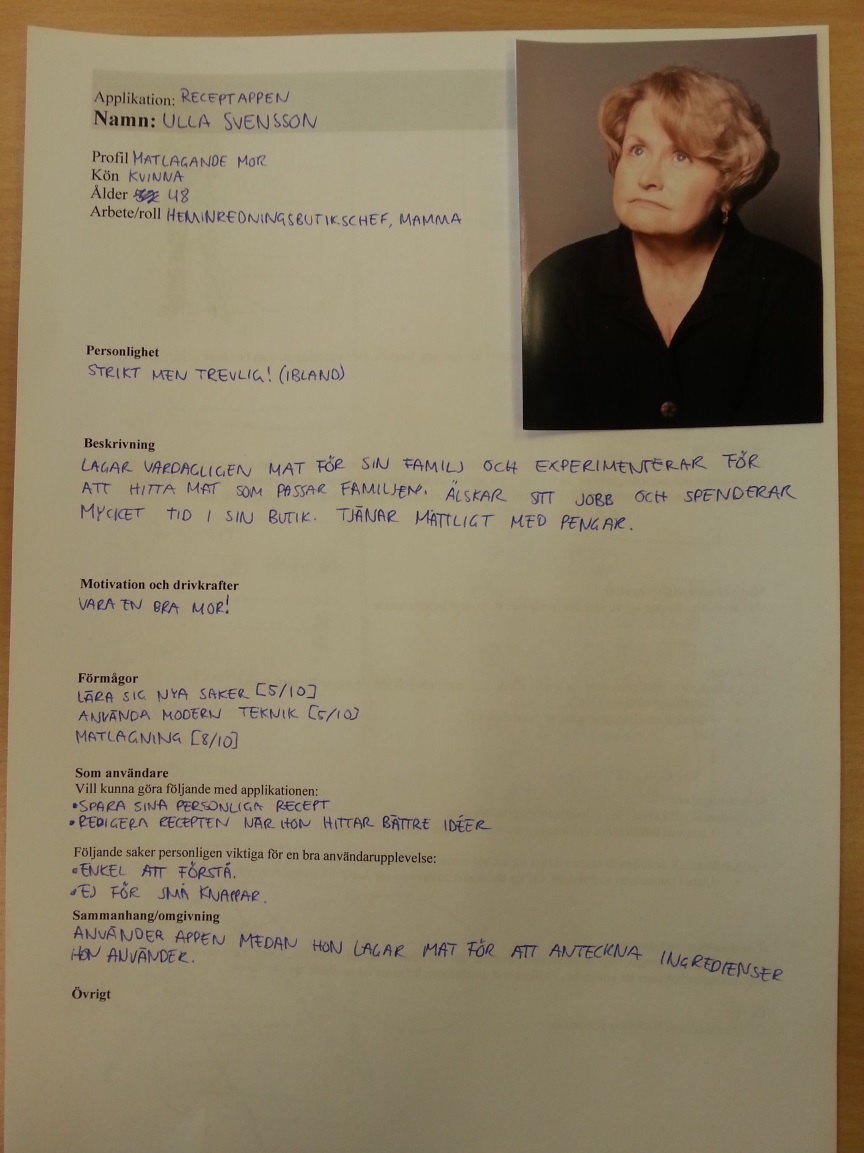 Applikation: RECEPTAPPEN
Namn: ULLA SVENSSON
Profil MATLAGANDE MOR
Kön KVINNA
Ålder 48
Arbete/roll HEMINREDNINGSBUTIKSCHEF, MAMMA
Personlighet
STRIKT MEN TREVLIG! (IBLAND)
Beskrivning
LAGAR VARDAGLIGEN MAT FÖR SIN FAMILJ OCH EXPERIMENTERAR FÖR
ATT HITTA MAT SOM PASSAR FAMILJEN. ÄLSKAR SITT JOBB OCH SPENDERAR
MYCKET TID I SIN BUTIK. TJÄNAR MÅTTLIGT MED PENGAR.
Motivation och drivkrafter
VARA EN BRA MOR!
Förmågor
LÄRA SIG NYA SAKER [5/10]
ANVÄNDA MODERN TEKNIK [5/10]
MATLAGNING [8/10]
Som användare
Vill kunna göra följande med applikationen:
•SPARA SINA PERSONLIGA RECEPT
•REDIGERA RECEPTEN NÄR HON HITTAR BÄTTRE IDÉER
Följande saker personligen viktiga för en bra användarupplevelse:
•ENKEL ATT FÖRSTÅ.
•EJ FÖR SMÅ KNAPPAR.
Sammanhang/omgivning
ANVÄNDER APPEN MEDAN HON LAGAR MAT FÖR ATT ANTECKNA INGREDIENSER
HON ANVÄNDER.
Övrigt